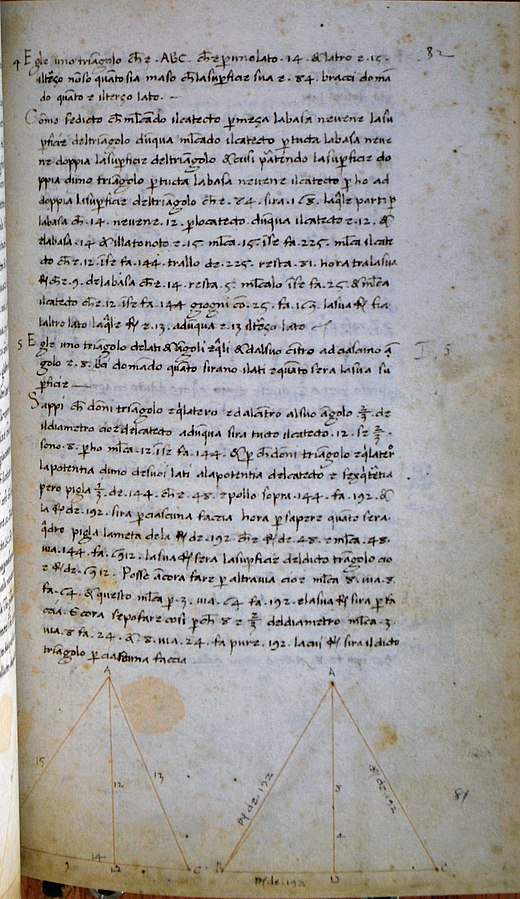 82
4 Egle uno triãgolo cħ e . ABC . cħ e p uno lato . 14 . & latro e . 15 .
ilterço nõ so quãto sia ma so cħ la supficie sua e . 84 . bracci domã
do quãto e ilterço lato . —
Como se dicto cħ mĩcãdo ilcatecto p meça labasa nevene la su
pficie del triãgolo duqua mĩcãdo ilcatecto p tucta labasa neve
ne doppia la supficie del triãgolo & cusi partẽdo la supficie do
ppia duno triãgolo p tucta labasa nevene ilcatecto pho ad
doppia la supficie del triãgolo cħ e . 84 . sira . 168 . laq̃le parti p
labasa cħ . 14 . nevene . 12 . plo catecto duqua ilcatecto e . 12 . &
elabasa . 14 & illato noto e . 15 mĩca . 15 . ĩ se fa . 225 . mĩca ilcate
cto cħ e . 12 . ĩ se fa . 144 . trallo de . 225 . resta . 81 . hora tra la sua
℞ cħ e . 9 . de la basa cħ e . 14 . resta . 5 . mĩcalo ĩ se fa . 25 . & mĩca
ilcatecto cħ e . 12 ĩ se fa . 144 giogni cõ . 25 . fa . 169 . la sua ℞ fia
laltro lato laq̃le ℞ e . 13 . aduqua e . 13 ilterço lato
5 Egle uno triãgolo de lati & ãgoli eq̃li & dal suo cẽtro ad ciascuno ã
golo e . 8 . bci domãdo quãto sirano i lati e quãto sera la sua su
pficie —
I 5
Sappi cħ õni triãgolo eq̃latero e da lcẽtro al suo ãgolo ⅔ . de
ildiametro cioe del catecto aduqua sira tucto ilcatecto . 12 . se ⅔ .
sono . 8 . pho mĩca . 12 . ĩ se fa . 144 . & p cħ õni triãgolo eq̃latero
la potentia duno de suoi lati a la potentia del catecto e sexq̃tẽtia
pero pigla ⅓ . de . 144 . cħ e . 48 . e pollo sopra . 144 . fa . 192 . &
la ℞ de . 192 . sira p ciascuna faccia hora p sapere quãto sera
q̃dro pigla la meta de la ℞ de . 192 . cħ e ℞ de . 48 . e mĩca . 48 .
via . 144 . fa . 6912 . la sua ℞ sera la supficie del dicto triãgolo cio
e ℞ de . 6912 . Posse ãcora fare p altra via cioe mĩca 8 . via . 8 .
fa . 64 . & questo mĩca p . 3 . via . 64 fa . 192 . e la sua ℞ sira p fa
ccia. Ecora se po fare cosi p cħ 8 e ⅔ del diametro mĩca . 3
via . 8 fa . 24 . & 8 . via . 24 . fa pure . 192 . la cui ℞ sira il dicto
triãgolo p ciascuna faccia
A
15
12
13
9
14
D
C
A
℞ de . 192
℞ de . 192
8
4
B
D
C
℞ de . 192